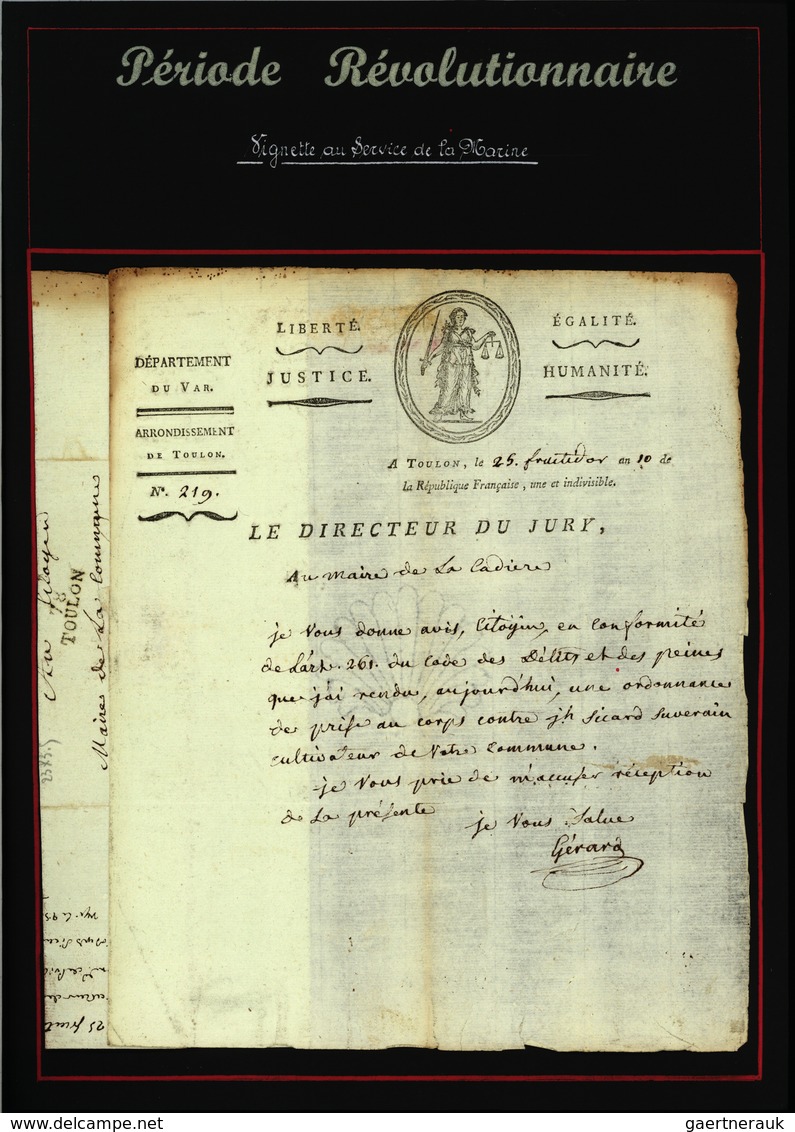 Période Révolutionnaire
Vignette au Service de la Marine
LIBERTÉ.
JUSTICE.
ÉGALITÉ.
HUMANITÉ.
DÉPARTEMENT
DU VAR.
ARRONDISSEMENT
DE TOULON.
N.º 219.
A TOULON, le 25. fructidor an 10 de
la République Française, une et indivisible.
LE DIRECTEUR DU JURY,
Au Maire de La Cadiere
je vous donne avis, Citoyen, en conformité
de L'art. 261. du Code des Délits et des peines
que j'ai rendu, aujourd'hui, une ordonnance
de prise au corps contre jh Sicard Suverain
cultivateur de Votre Commune.
je Vous prie de m'accuser réception
de La présente
je Vous Salue
Gérard
Citoyen
78
TOULON
Maire de La Commune
2373.5
gaertnerauk